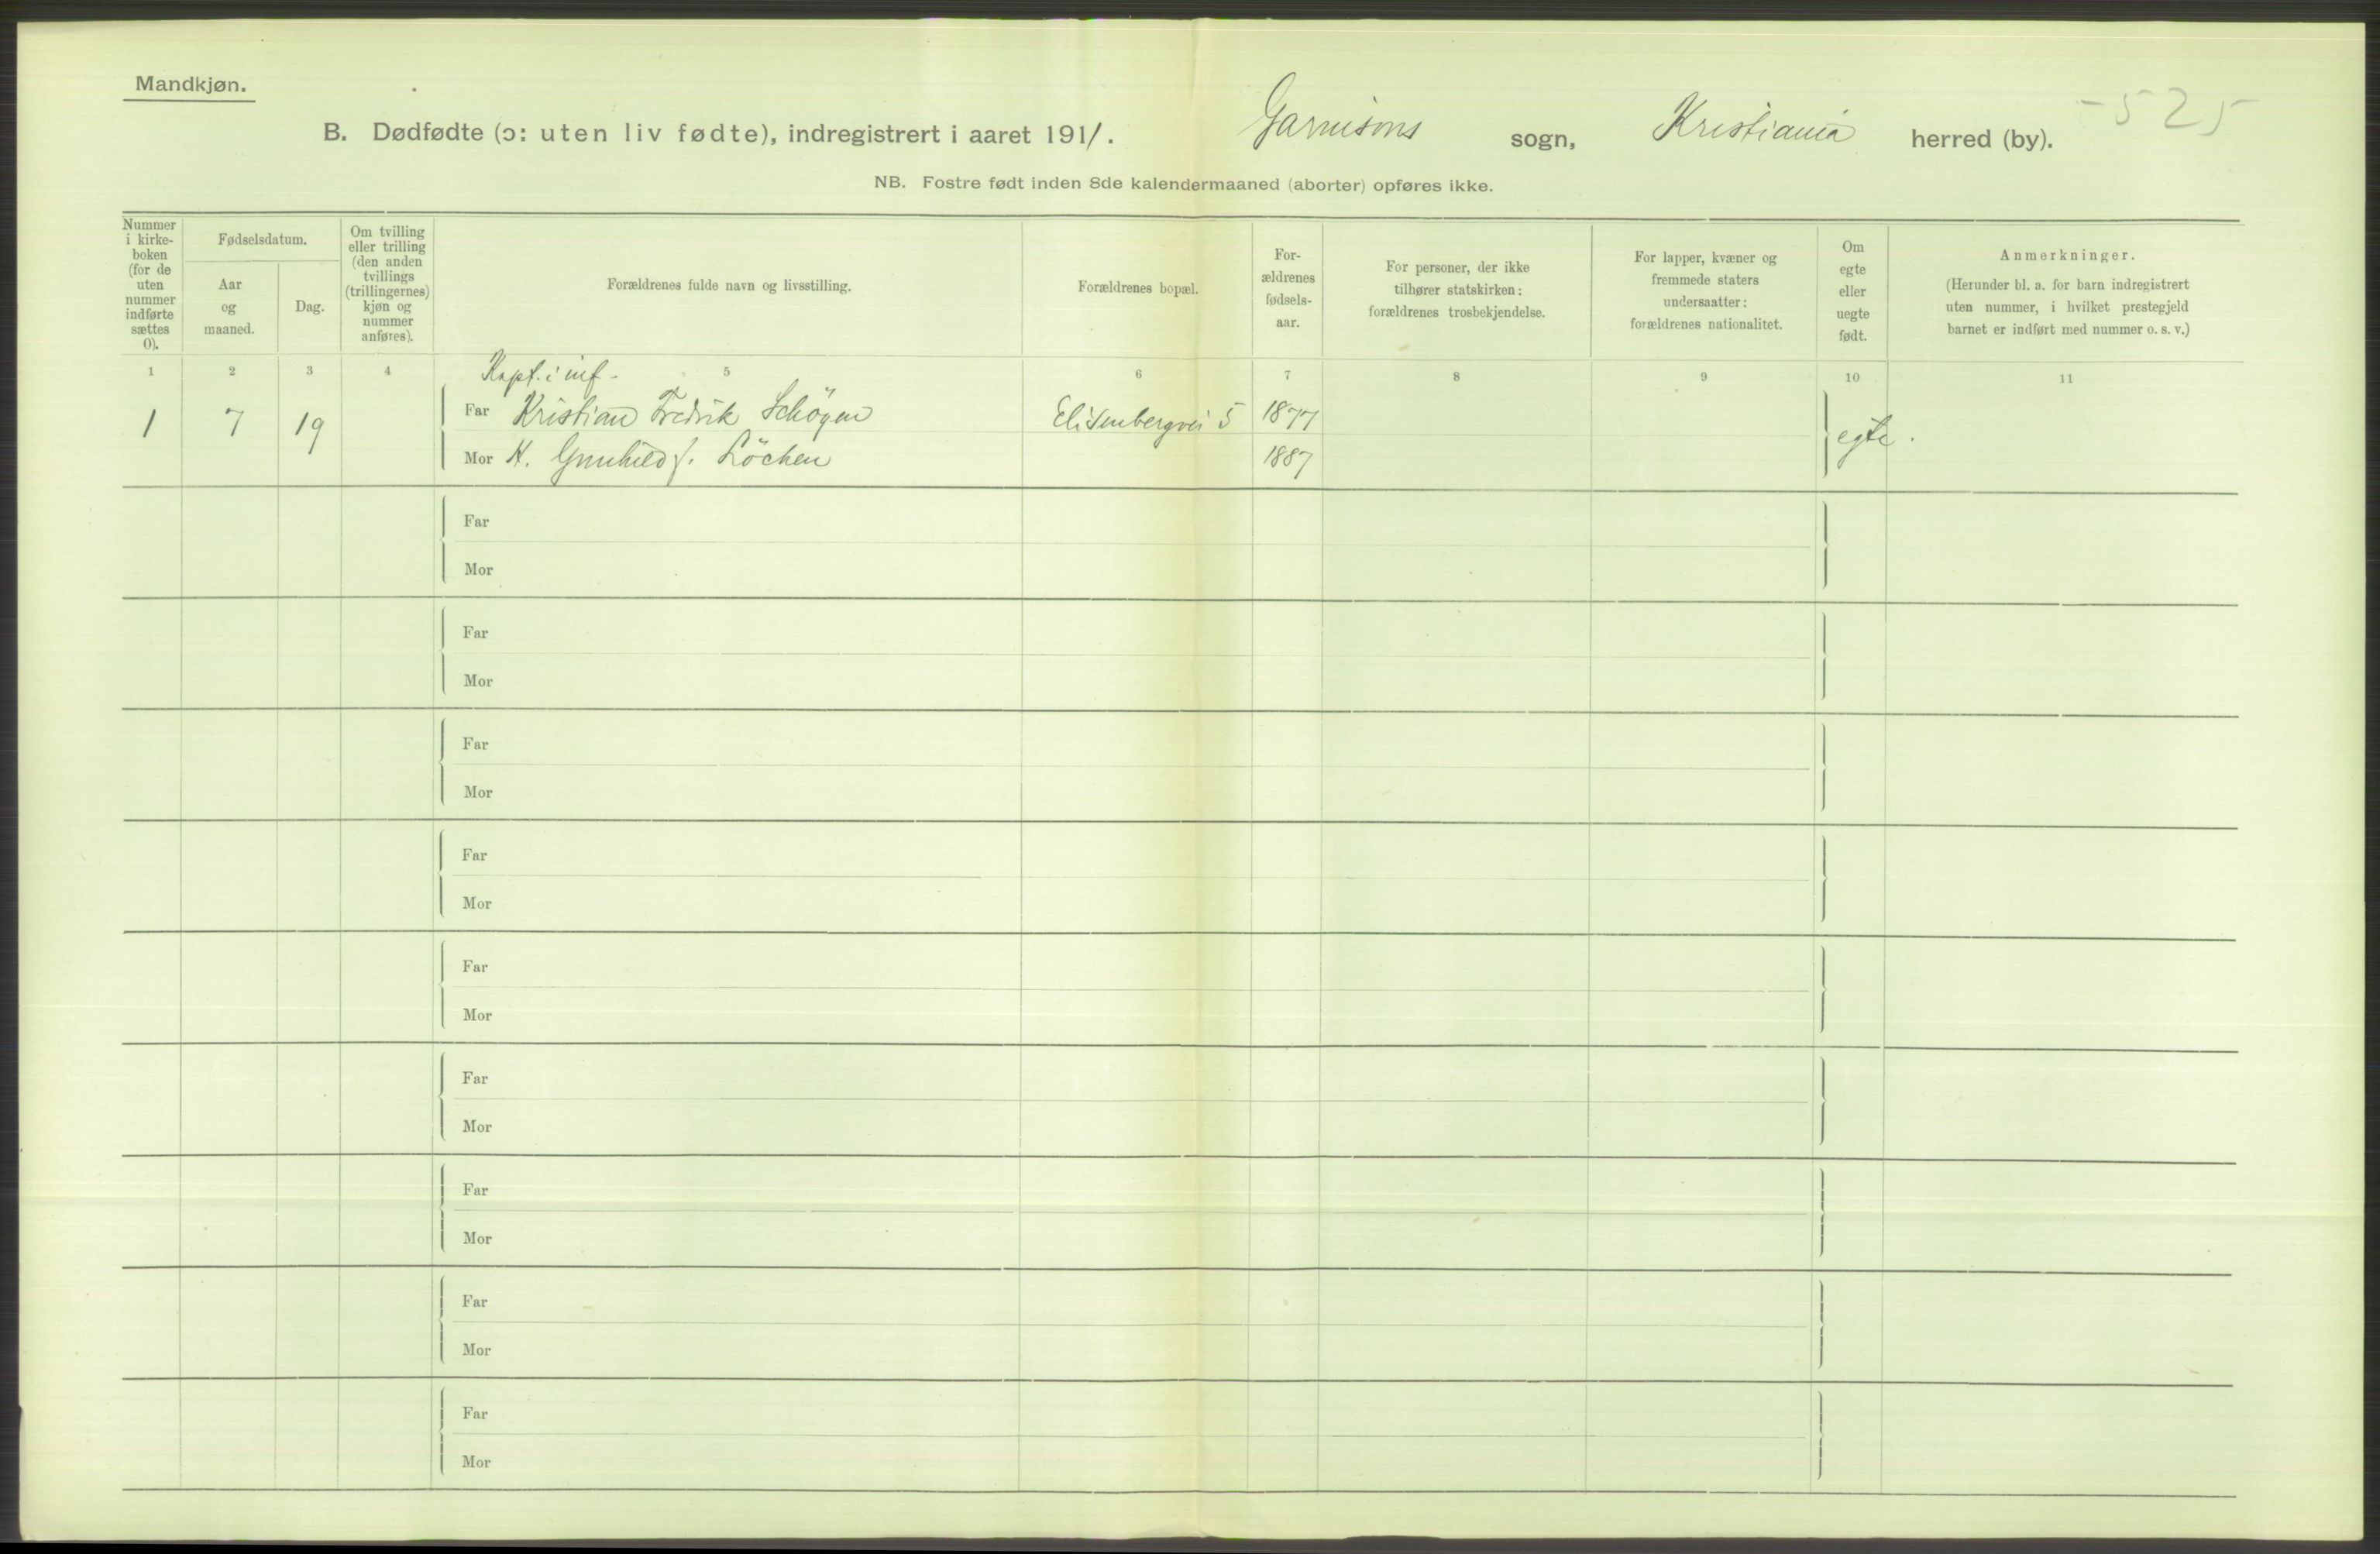 Mandkjøn.
B. Dødfødte (ɔ: uten liv fødte), indregistrert i aaret 1911. Garnisons sogn, Kristiania herred (by). -525
NB. Fostre født inden 8de kalendermaaned (aborter) opføres ikke.
Nummer i kirke-boken (for de uten nummer indførte sættes 0).
Fødselsdatum.
Aar og maaned.
Dag.
Om tvilling eller trilling (den anden tvillings (trillingernes) kjøn og nummer anføres).
Forældrenes fulde navn og livsstilling.
Forældrenes bopæl.
For-ældrenes fødsels-aar.
For personer, der ikke tilhører statskirken: forældrenes trosbekjendelse.
For lapper, kvæner og fremmede staters undersaatter: forældrenes nationalitet.
Om egte eller uegte født.
Anmerkninger.
(Herunder bl. a. for barn indregistrert uten nummer, i hvilket prestegjeld barnet er indført med nummer o. s. v.)
1 2 3 4 5 6 7 8 9 10 11
Kapt. i inf.
1 7 19 Far Kristian Fredrik Schöyen Elisenbergvei 5 1877 egte.
Mor H. Gunhild f. Löchen 1887
Far
Mor
Far
Mor
Far
Mor
Far
Mor
Far
Mor
Far
Mor
Far
Mor
Far
Mor
Far
Mor